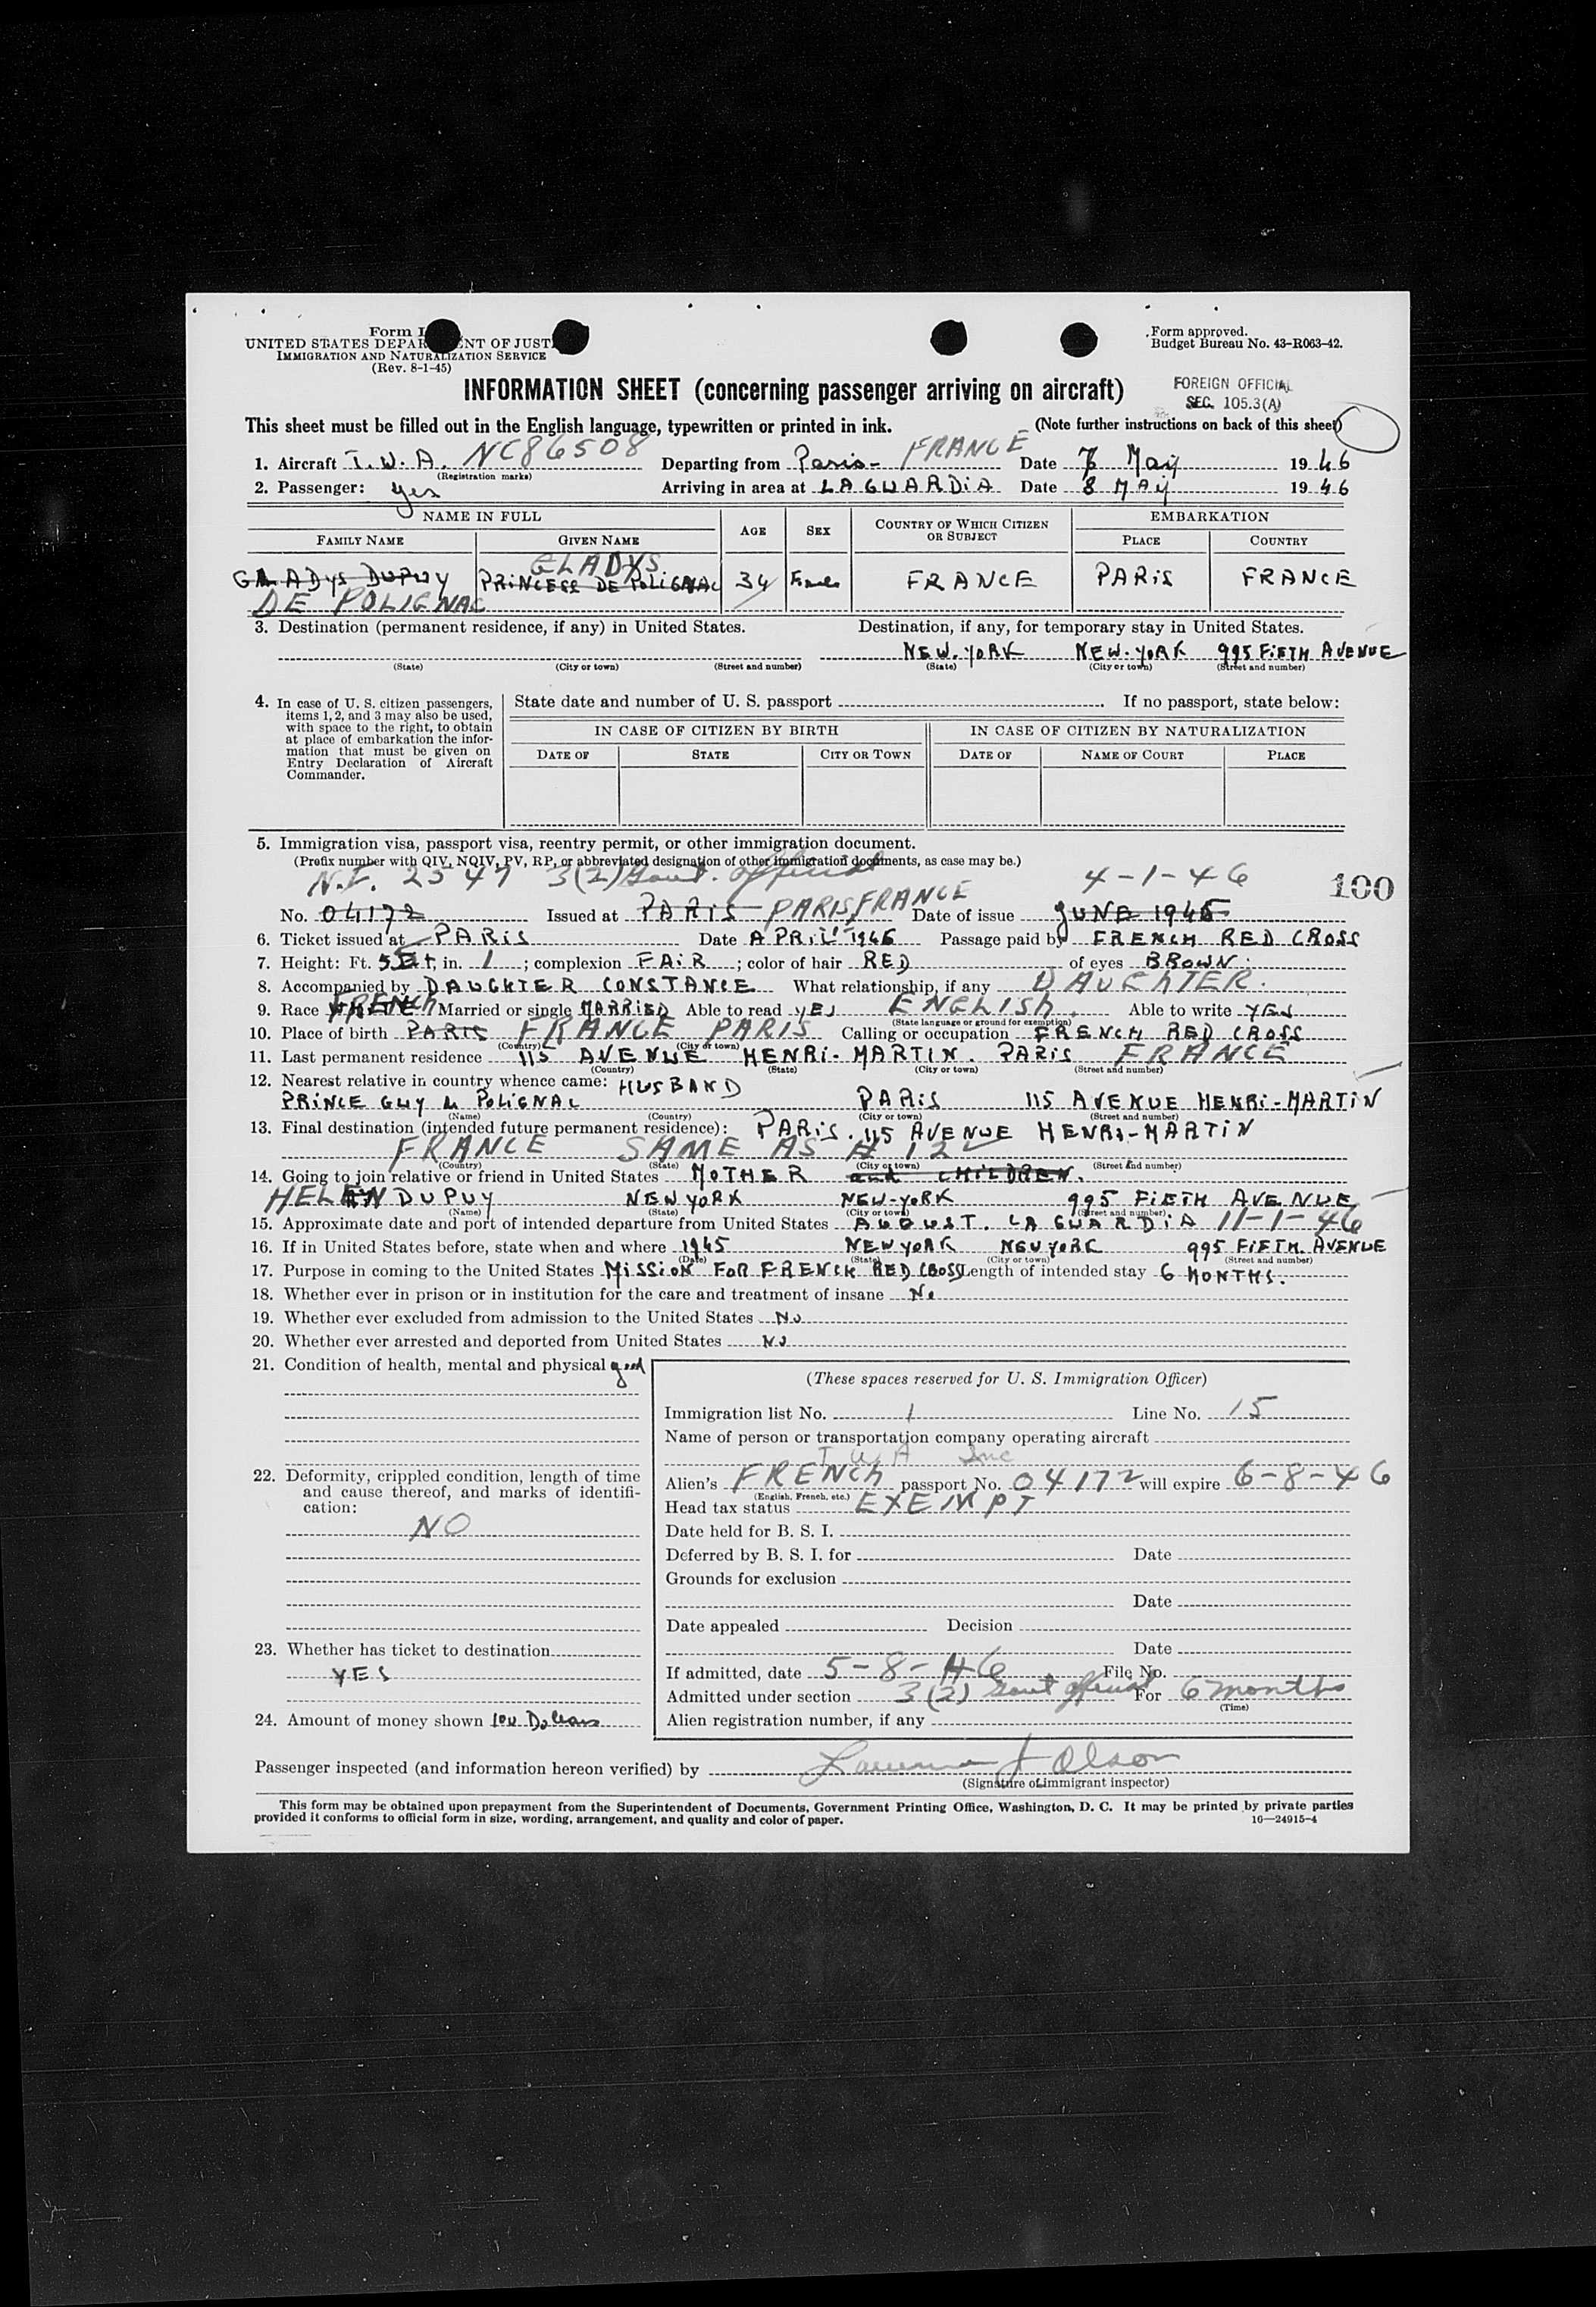 Form I
UNITED STATES DEPAR ENT OF JUST
IMMIGRATION AND NATURALIZATION SERVICE
(Rev. 8-1-45)
Form approved.
Budget Bureau No. 43-R063-42.
INFORMATION SHEET (concerning passenger arriving on aircraft)
FOREIGN OFFICIAL
SEC. 105.3(A)
This sheet must be filled out in the English language, typewritten or printed in ink. (Note further instructions on back of this sheet)
1. Aircraft T.W.A. NC86508 Departing from Paris - FRANCE Date 7 May 1946
(Registration marks)
2. Passenger: yes Arriving in area at LAGUARDIA Date 8 MAY 1946
NAME IN FULL AGE SEX COUNTRY OF WHICH CITIZEN OR SUBJECT EMBARKATION
FAMILY NAME GIVEN NAME PLACE COUNTRY
GLADYS
GLADYS DUPUY PRINCESS DE POLIGNAC 34 FRANCE PARIS FRANCE
DE POLIGNAC
3. Destination (permanent residence, if any) in United States. Destination, if any, for temporary stay in United States.
NEW-YORK NEW-YORK 995 FIFTH AVENUE
(State) (City or town) (Street and number) (State) (City or town) (Street and number)
4. In case of U. S. citizen passengers, items 1, 2, and 3 may also be used, with space to the right, to obtain at place of embarkation the information that must be given on Entry Declaration of Aircraft Commander.
State date and number of U. S. passport If no passport, state below:
IN CASE OF CITIZEN BY BIRTH IN CASE OF CITIZEN BY NATURALIZATION
DATE OF STATE CITY OR TOWN DATE OF NAME OF COURT PLACE
5. Immigration visa, passport visa, reentry permit, or other immigration document.
(Prefix number with QIV, NQIV, PV, RP, or abbreviated designation of other immigration documents, as case may be.)
N.I. 2547 3(2) Govt. official 4-1-46 100
No. 04172 Issued at PARIS PARIS, FRANCE Date of issue JUNE 1945
6. Ticket issued at PARIS Date APRIL 1946 Passage paid by FRENCH RED CROSS
7. Height: Ft. 5 in. 1; complexion FAIR; color of hair RED of eyes BROWN.
8. Accompanied by DAUGHTER CONSTANCE What relationship, if any DAUGHTER.
9. Race WHITE FRENCH Married or single MARRIED Able to read YES ENGLISH. Able to write YES
(State language or ground for exemption)
10. Place of birth PARIS FRANCE PARIS Calling or occupation FRENCH RED CROSS
(Country) (City or town)
11. Last permanent residence 115 AVENUE HENRI-MARTIN. PARIS FRANCE
(Country) (State) (City or town) (Street and number)
12. Nearest relative in country whence came: HUSBAND
PRINCE GUY de POLIGNAC PARIS 115 AVENUE HENRI-MARTIN
(Name) (Country) (City or town) (Street and number)
13. Final destination (intended future permanent residence): PARIS. 115 AVENUE HENRI-MARTIN
FRANCE SAME AS # 12
(Country) (State) (City or town) (Street and number)
14. Going to join relative or friend in United States MOTHER and CHILDREN.
HELEN DUPUY NEW YORK NEW-YORK 995 FIFTH AVENUE
(Name) (State) (City or town) (Street and number)
15. Approximate date and port of intended departure from United States AUGUST. LA GUARDIA 11-1-46
16. If in United States before, state when and where 1945 NEW YORK NEW YORK 995 FIFTH AVENUE
(Date) (State) (City or town) (Street and number)
17. Purpose in coming to the United States MISSION FOR FRENCH RED CROSS Length of intended stay 6 MONTHS.
18. Whether ever in prison or in institution for the care and treatment of insane No
19. Whether ever excluded from admission to the United States No
20. Whether ever arrested and deported from United States No
21. Condition of health, mental and physical good
(These spaces reserved for U. S. Immigration Officer)
Immigration list No. 1 Line No. 15
Name of person or transportation company operating aircraft
TWA Inc
22. Deformity, crippled condition, length of time and cause thereof, and marks of identification:
NO
Alien's FRENCH passport No. 04172 will expire 6-8-46
(English, French, etc.)
Head tax status EXEMPT
Date held for B. S. I.
Deferred by B. S. I. for Date
Grounds for exclusion
Date
Date appealed Decision
23. Whether has ticket to destination Date
YES
If admitted, date 5-8-46 File No.
Admitted under section 3(2) Govt official For 6 months
(Time)
24. Amount of money shown 100 Dollars Alien registration number, if any
Passenger inspected (and information hereon verified) by Lawrence J Olson
(Signature of immigrant inspector)
This form may be obtained upon prepayment from the Superintendent of Documents, Government Printing Office, Washington, D. C. It may be printed by private parties
provided it conforms to official form in size, wording, arrangement, and quality and color of paper. 16—24915-4